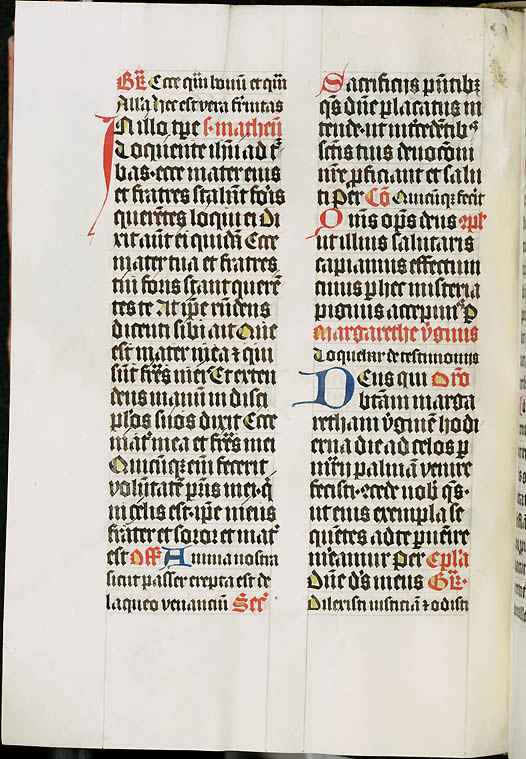 Gr̄ Ecce q̄m bonū et q̄m
Alla Hec est vera fr̄nitas
In illo tp̄e s. matheū
Loquente ihū ad t̉
bas. ecce mater eius
et fratres stabāt foris
querētes loqui ei Di
xit aūt ei quidā Ecce
mater tua et fratres
tui foris stant querē
tes te At ip̄e rn̄dens
dicenti sibi ait Que
est mater mea ⁊ qui
sūt fr̄es mei Et exten
dens manū in disci
pl̄os suos dixit Ecce
mat̉ mea et fr̄es mei
Quicūqꝫ eī fecerit
volūtatē pr̄is mei. q̄
in celis est. ip̄e meus
frater et soror et mat̉
est Off̄ Anima nostra
sicut passer erepta est de
laqueo venanciū Sec̄
Sacrificijs pn̄tibꝫ
q̄s dn̄e placatus in
tende. ut int̉cedētibꝰ
scīs tuis deuocōni
nr̄e ꝓficiant et salu
ti Per Cō Quicūqꝫ fecit
Om̄s op̄s deus xp̄s
ut illius salutaris
capiamus effectum
cuius ꝑ hec misteria
pignus accepimꝰ P
Margarethe v̉ginis
Loquebar de testimonijs
Deus qui Orō
btām marga
retham v̉ginē hodi
erna die ad celos ꝑ
mr̄ij palmā venire
fecisti. ↄcede nob̄ q̄s.
ut eius exempla se
quētes ad te ꝑuēire
m̉eamur Per Ep̄la
Dn̄e d̄s meus Gr̄.
Dilexisti iusticiā ⁊ odisti